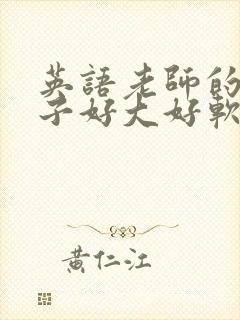 英語老師的
子好大好軟
黃仁江